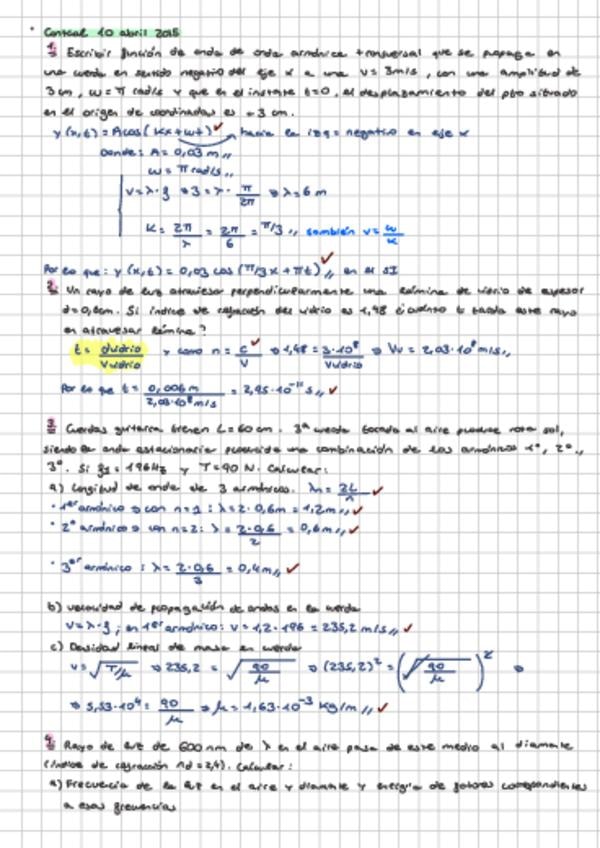 Control 10 abril 2015
1. Escribir función de onda de onda armónica transversal que se propaga en
una cuerda en sentido negativo del eje x a una v = 3m/s, con una amplitud de
3 cm, ω = π rad/s y que en el instante t=0, el desplazamiento del pto situado
en el origen de coordenadas es 3 cm.
y (x,t) = A cos (Kx + ωt) ✓ hacia la izq = negativo en eje x
Donde: A = 0,03 m,,
ω = π rad/s,,
v = λ·f → 3 = λ · π/2π → λ = 6 m
K = 2π/λ = 2π/6 = π/3,, también v = ω/K
Por lo que: y (x,t) = 0,03 cos (π/3 x + πt),, en el SI ✓
2. Un rayo de luz atraviesa perpendicularmente una lámina de vidrio de espesor
d = 0,6cm. Si índice de refracción del vidrio es 1,48 ¿cuánto tarda este rayo
en atravesar lámina?
t = dvidrio/Vvidrio y como n = c/v ✓ → 1,48 = 3·10⁸/Vvidrio → Vv = 2,03·10⁸ m/s,,
Por lo que t = 0,006 m/2,03·10⁸ m/s = 2,95·10⁻¹¹ s,, ✓
3. Cuerdas guitarra tienen L = 60 cm. 3ª cuerda tocada al aire produce nota sol,
siendo la onda estacionaria producida una combinación de los armónicos 1º, 2º,
3º. Si f₁ = 196Hz y T = 90 N. Calcular:
a) Longitud de onda de 3 armónicos. λn = 2L/n ✓
· 1er armónico → con n=1: λ = 2·0,6m = 1,2m,, ✓
· 2º armónico → con n=2: λ = 2·0,6/2 = 0,6m,, ✓
· 3er armónico: λ = 2·0,6/3 = 0,4m,, ✓
b) velocidad de propagación de ondas en la cuerda
v = λ·f ; en 1er armónico: v = 1,2·196 = 235,2 m/s,, ✓
c) Densidad lineal de masa en cuerda
v = √T/μ → 235,2 = √90/μ → (235,2)² = (√90/μ)² →
→ 5,53·10⁴ = 90/μ → μ = 1,63·10⁻³ Kg/m,, ✓
4. Rayo de luz de 600 nm de λ en el aire pasa de este medio al diamante
(índice de refracción nd = 2,4). Calcular:
a) Frecuencia de la luz en el aire y diamante y energía de fotones correspondientes
a esas frecuencias